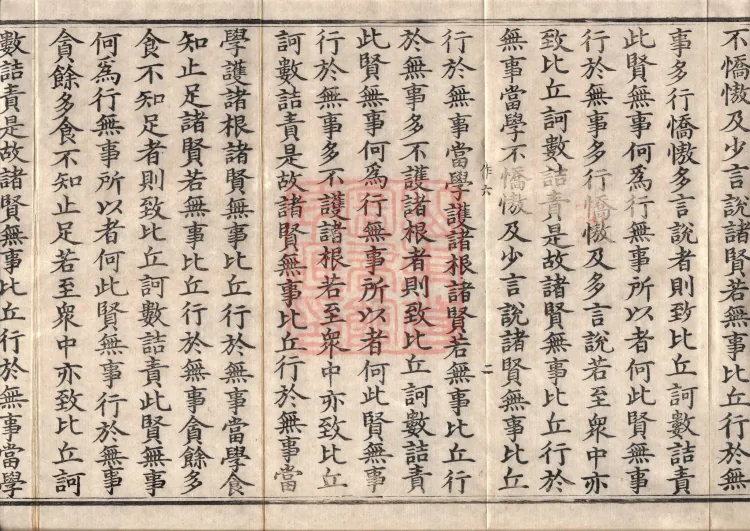 不憍慠及少言說諸賢若無事比丘行於無
事多行憍慠多言說者則致比丘訶數詰責
此賢無事何爲行無事所以者何此賢無事
行於無事多行憍慠及多言說若至衆中亦
致比丘訶數詰責是故諸賢無事比丘行於
無事當學不憍慠及少言說諸賢無事比丘
作六 二
行於無事當學護諸根諸賢若無事比丘行
於無事多不護諸根者則致比丘訶數詰責
此賢無事何爲行無事所以者何此賢無事
行於無事多不護諸根若至衆中亦致比丘
訶數詰責是故諸賢無事比丘行於無事當
學護諸根諸賢無事比丘行於無事當學食
知止足諸賢若無事比丘行於無事貪餘多
食不知足者則致比丘訶數詰責此賢無事
何爲行無事所以者何此賢無事行於無事
貪餘多食不知止足若至衆中亦致比丘訶
數詰責是故諸賢無事比丘行於無事當學